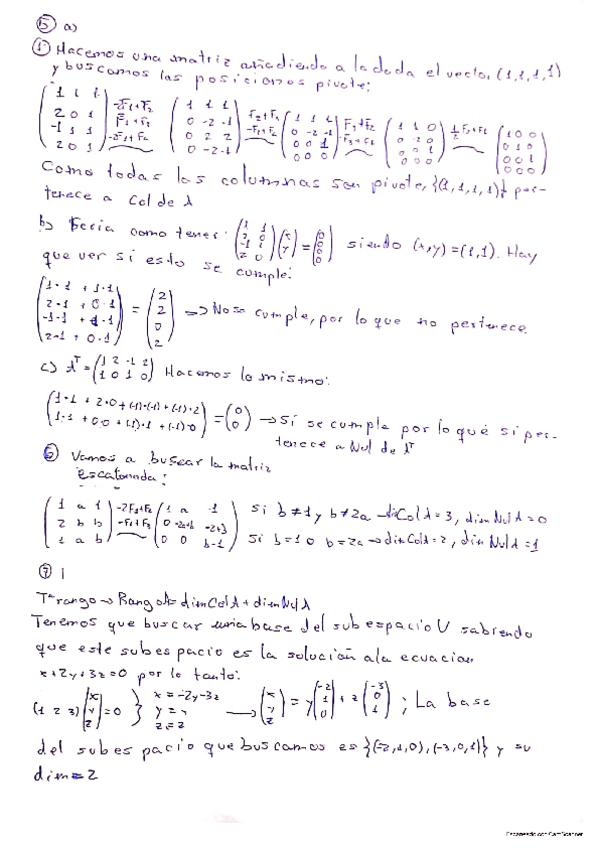 ⑤ a)
① Hacemos una matriz añadiendo a la dada el vector (1,1,1,1)
y buscamos las posiciones pivote:
(1 1 1; 2 0 1; -1 1 1; 2 0 1) (1 1 1; 0 -2 -1; 0 2 2; 0 -2 -1) F2+F3 -F2+F4 (1 1 1; 0 -2 -1; 0 0 1; 0 0 0) (1 1 0; 0 -2 0; 0 0 1; 0 0 0) (1 0 0; 0 1 0; 0 0 1; 0 0 0)
Como todas las columnas son pivote, {(1,1,1,1)} per-
tenece a Col de A
b) Sería como tener: (1 1; 2 0; -1 1; 2 0)(x; y) = (0; 0; 0; 0) siendo (x,y)=(1,1). Hay
que ver si esto se cumple:
(1·1 + 1·1; 2·1 + 0·1; -1·1 + 1·1; 2·1 + 0·1) = (2; 2; 0; 2) → No se cumple, por lo que no pertenece.
c) Aᵀ = (1 2 -1 2; 1 0 1 0) Hacemos lo mismo:
(1·1 + 2·0 + (-1)·(-1) + (-1)·2; 1·1 + 0·0 + (-1)·1 + (-1)·0) = (0; 0) → Sí se cumple por lo que si per-
tenece a Nul de Aᵀ
⑥ Vamos a buscar la matriz
escalonada:
(1 a 1; 2 b b; 1 a b) -2F1+F2 -F1+F3 (1 a 1; 0 -2a+b -2+b; 0 0 b-1) Si b≠1 y b≠2a → dim ColA=3, dim NulA=0
Si b=1 o b=2a → dim ColA=2, dim NulA=1
⑦ i
Tª rango → Rango A = dim ColA + dim NulA
Tenemos que buscar una base del subespacio U sabiendo
que este subespacio es la solución a la ecuación
x+2y+3z=0 por lo tanto:
(1 2 3)(x; y; z)=0 } x = -2y-3z; y = y; z = z → (x; y; z) = y(-2; 1; 0) + z(-3; 0; 1) ; La base
del subespacio que buscamos es {(-2,1,0),(-3,0,1)} y su
dim=2
Escaneado con CamScanner